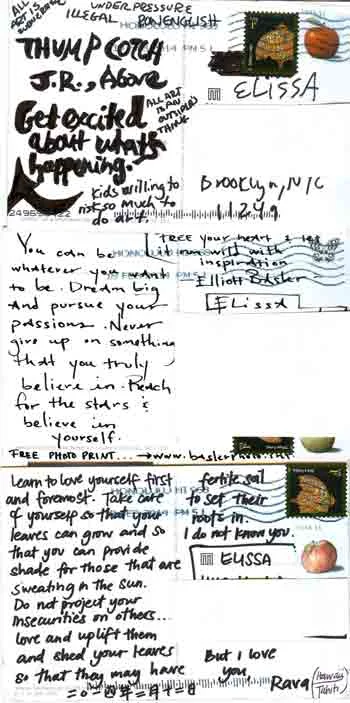 ALL
ART IS
UNDER PRESSURE
ILLEGAL
THUMP COTCH
J.R., Above
ELISSA
ALL ART
IS AN
OUTSIDER'S
THINK
Get excited
about whats
happening.
Kids willing to
risk so much to
do art.
Brooklyn, NYC
11249
You can be
whatever you want
to be. Dream big
and pursue your
passions. Never
give up on something
that you truly
believe in. Reach
for the stars &
believe in
yourself.
FREE your heart & let
it run wild with
inspiration
Elliott Basler
ELissa
FREE PHOTO PRINT...
Learn to love yourself first
and foremost. Take care
of yourself so that your
leaves can grow and so
that you can provide
shade for those that are
sweating in the Sun.
Do not project your
insecurities on others...
love and uplift them
and shed your leaves
so that they may have
fertile soil
to set their
roots in.
I do not know you.
ELISSA
But I love
you,
Rava (Hawaii
Tahiti)